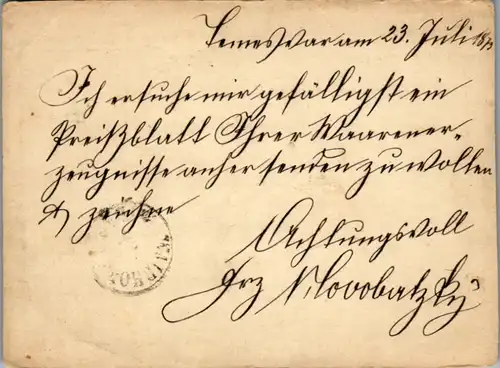 Temesvar am 23. Juli 187
Ich ersuche mir gefälligst ein
Preißblatt Ihrer Waarener-
zeugnisse anher senden zu wollen
& zeichne
Achtungsvoll
Frz Novobatzky
WAIDHO